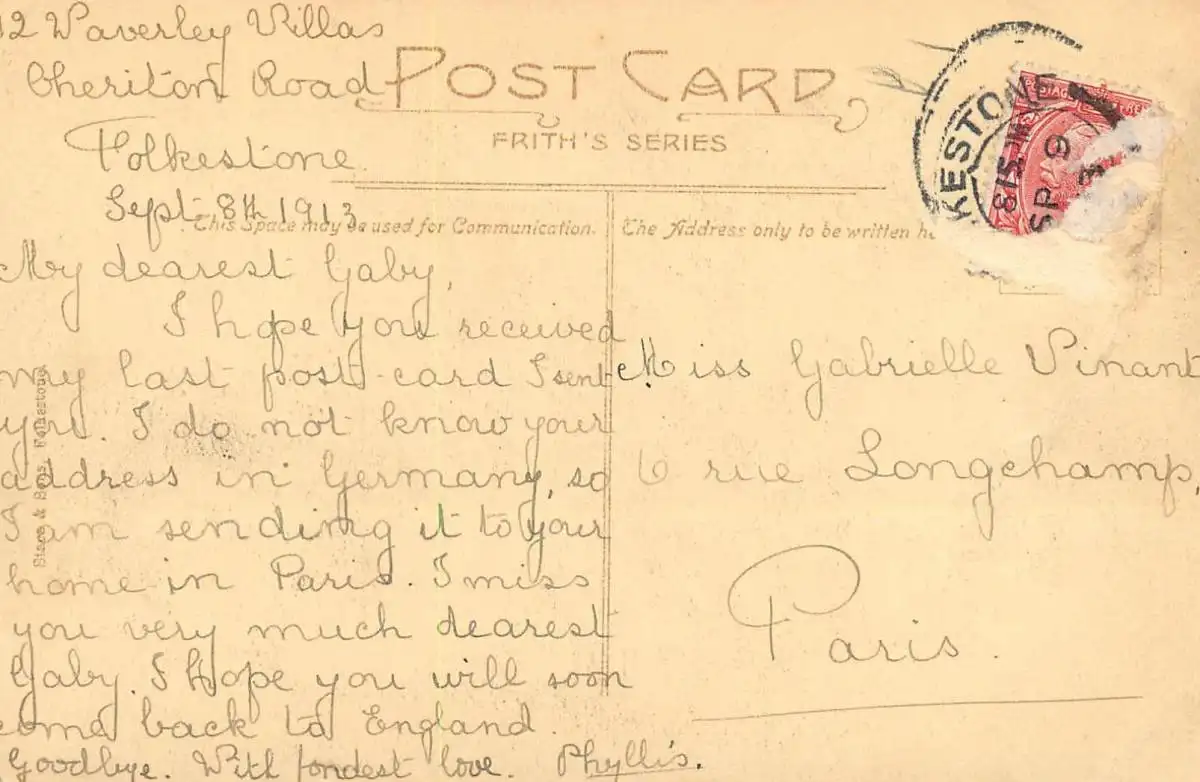 12 Waverley Villas
Cheriton Road
Folkestone
Sept 8th 1913
POST CARD
FRITH'S SERIES
This Space may be used for Communication.
The Address only to be written
My dearest Gaby,
I hope you received
my last post-card I sent
you. I do not know your
address in Germany, so
I am sending it to your
home in Paris. I miss
you very much dearest
Gaby. I hope you will soon
come back to England.
Goodbye. With fondest love. Phyllis.
Miss Gabrielle Vinant
6 rue Longchamp,
Paris.
KESTONE
8.15
SP 9
POSTAGE
& Sons, Folkestone